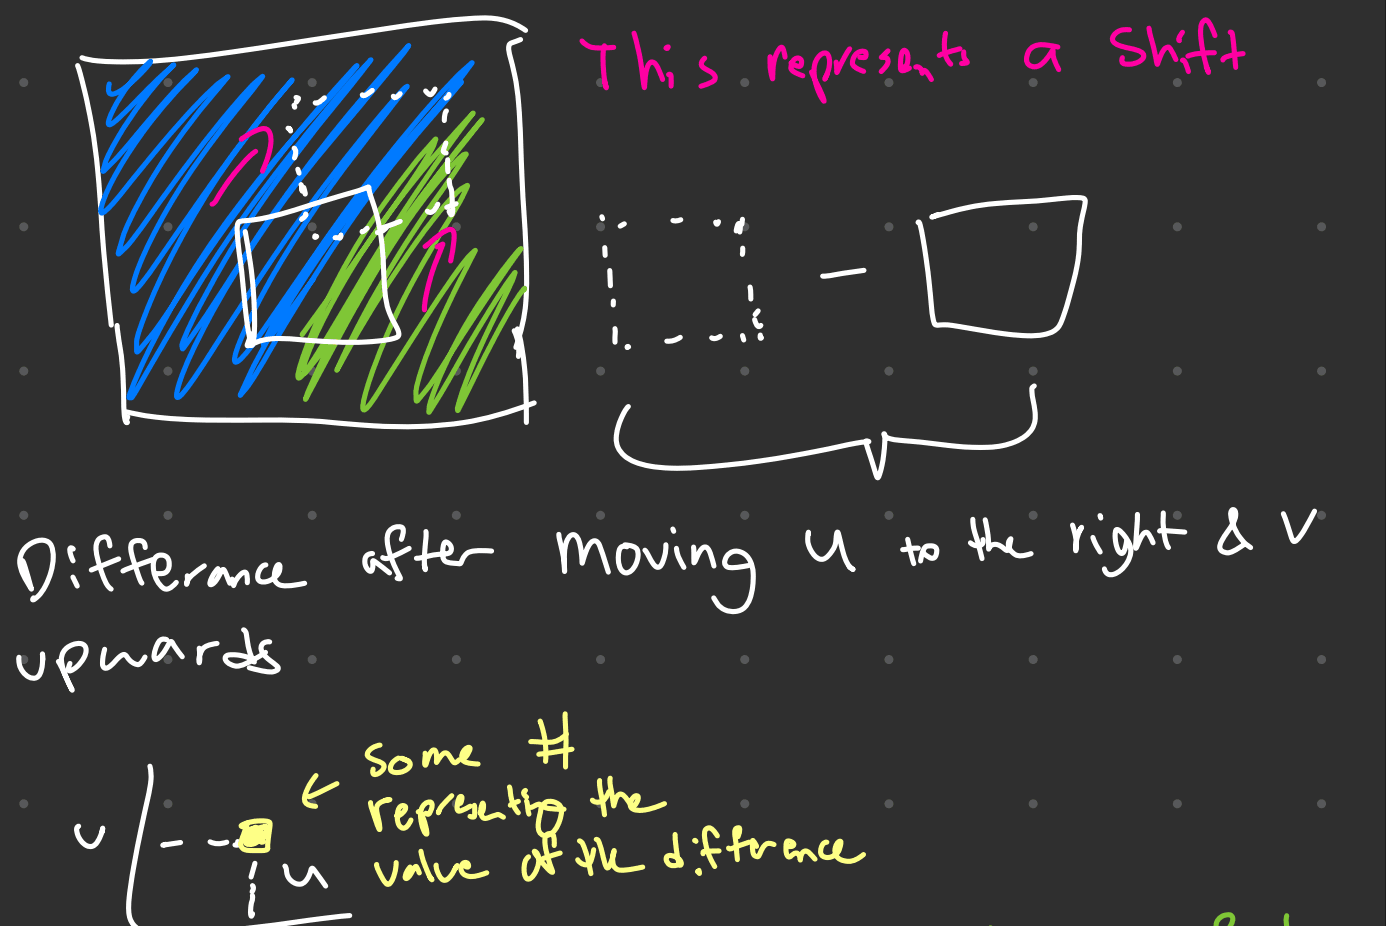 This represents a Shift
Differance after moving u to the right & v
upwards
some #
representing the
value of the difference
v
u